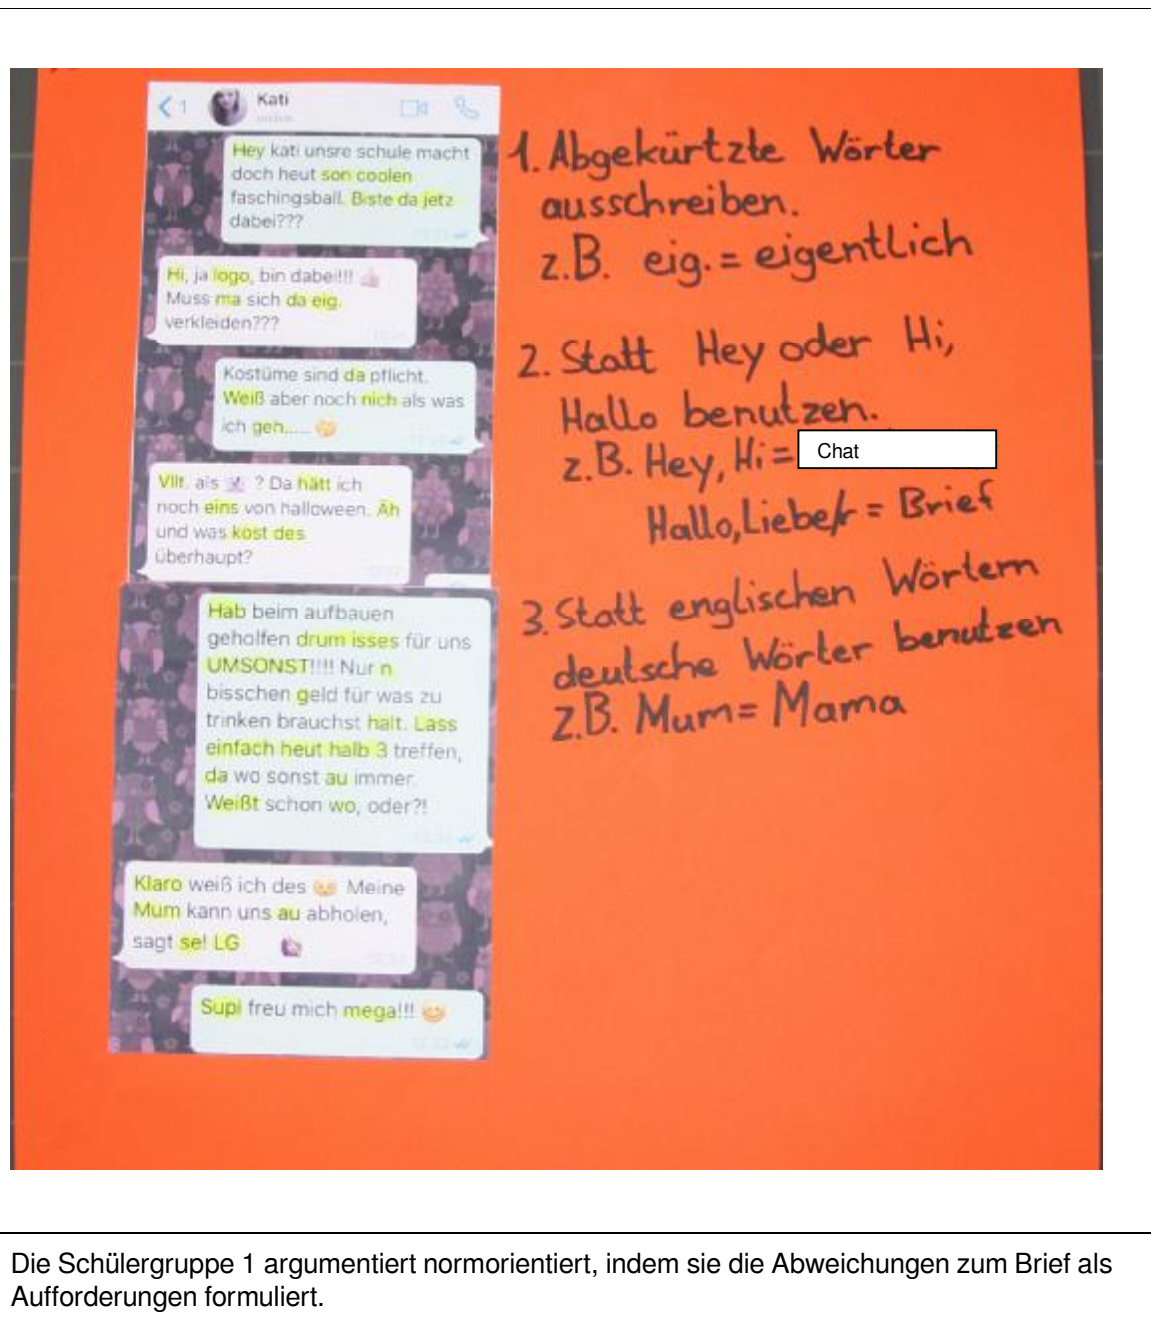 1
Kati
Hey kati unsre schule macht
doch heut son coolen
faschingsball. Biste da jetz
dabei???
Hi, ja logo, bin dabei!!!
Muss ma sich da eig.
verkleiden???
Kostüme sind da pflicht.
Weiß aber noch nich als was
ich geh.....
Vllt. als ? Da hätt ich
noch eins von halloween. Äh
und was kost des
überhaupt?
Hab beim aufbauen
geholfen drum isses für uns
UMSONST!!!! Nur n
bisschen geld für was zu
trinken brauchst halt. Lass
einfach heut halb 3 treffen,
da wo sonst au immer.
Weißt schon wo, oder?!
Klaro weiß ich des Meine
Mum kann uns au abholen,
sagt se! LG
Supi freu mich mega!!!
1. Abgekürtzte Wörter
ausschreiben.
z.B. eig. = eigentlich
2. Statt Hey oder Hi,
Hallo benutzen.
z.B. Hey, Hi = Chat
Hallo, Liebe/r = Brief
3. Statt englischen Wörtern
deutsche Wörter benutzen
z.B. Mum = Mama
Die Schülergruppe 1 argumentiert normorientiert, indem sie die Abweichungen zum Brief als
Aufforderungen formuliert.